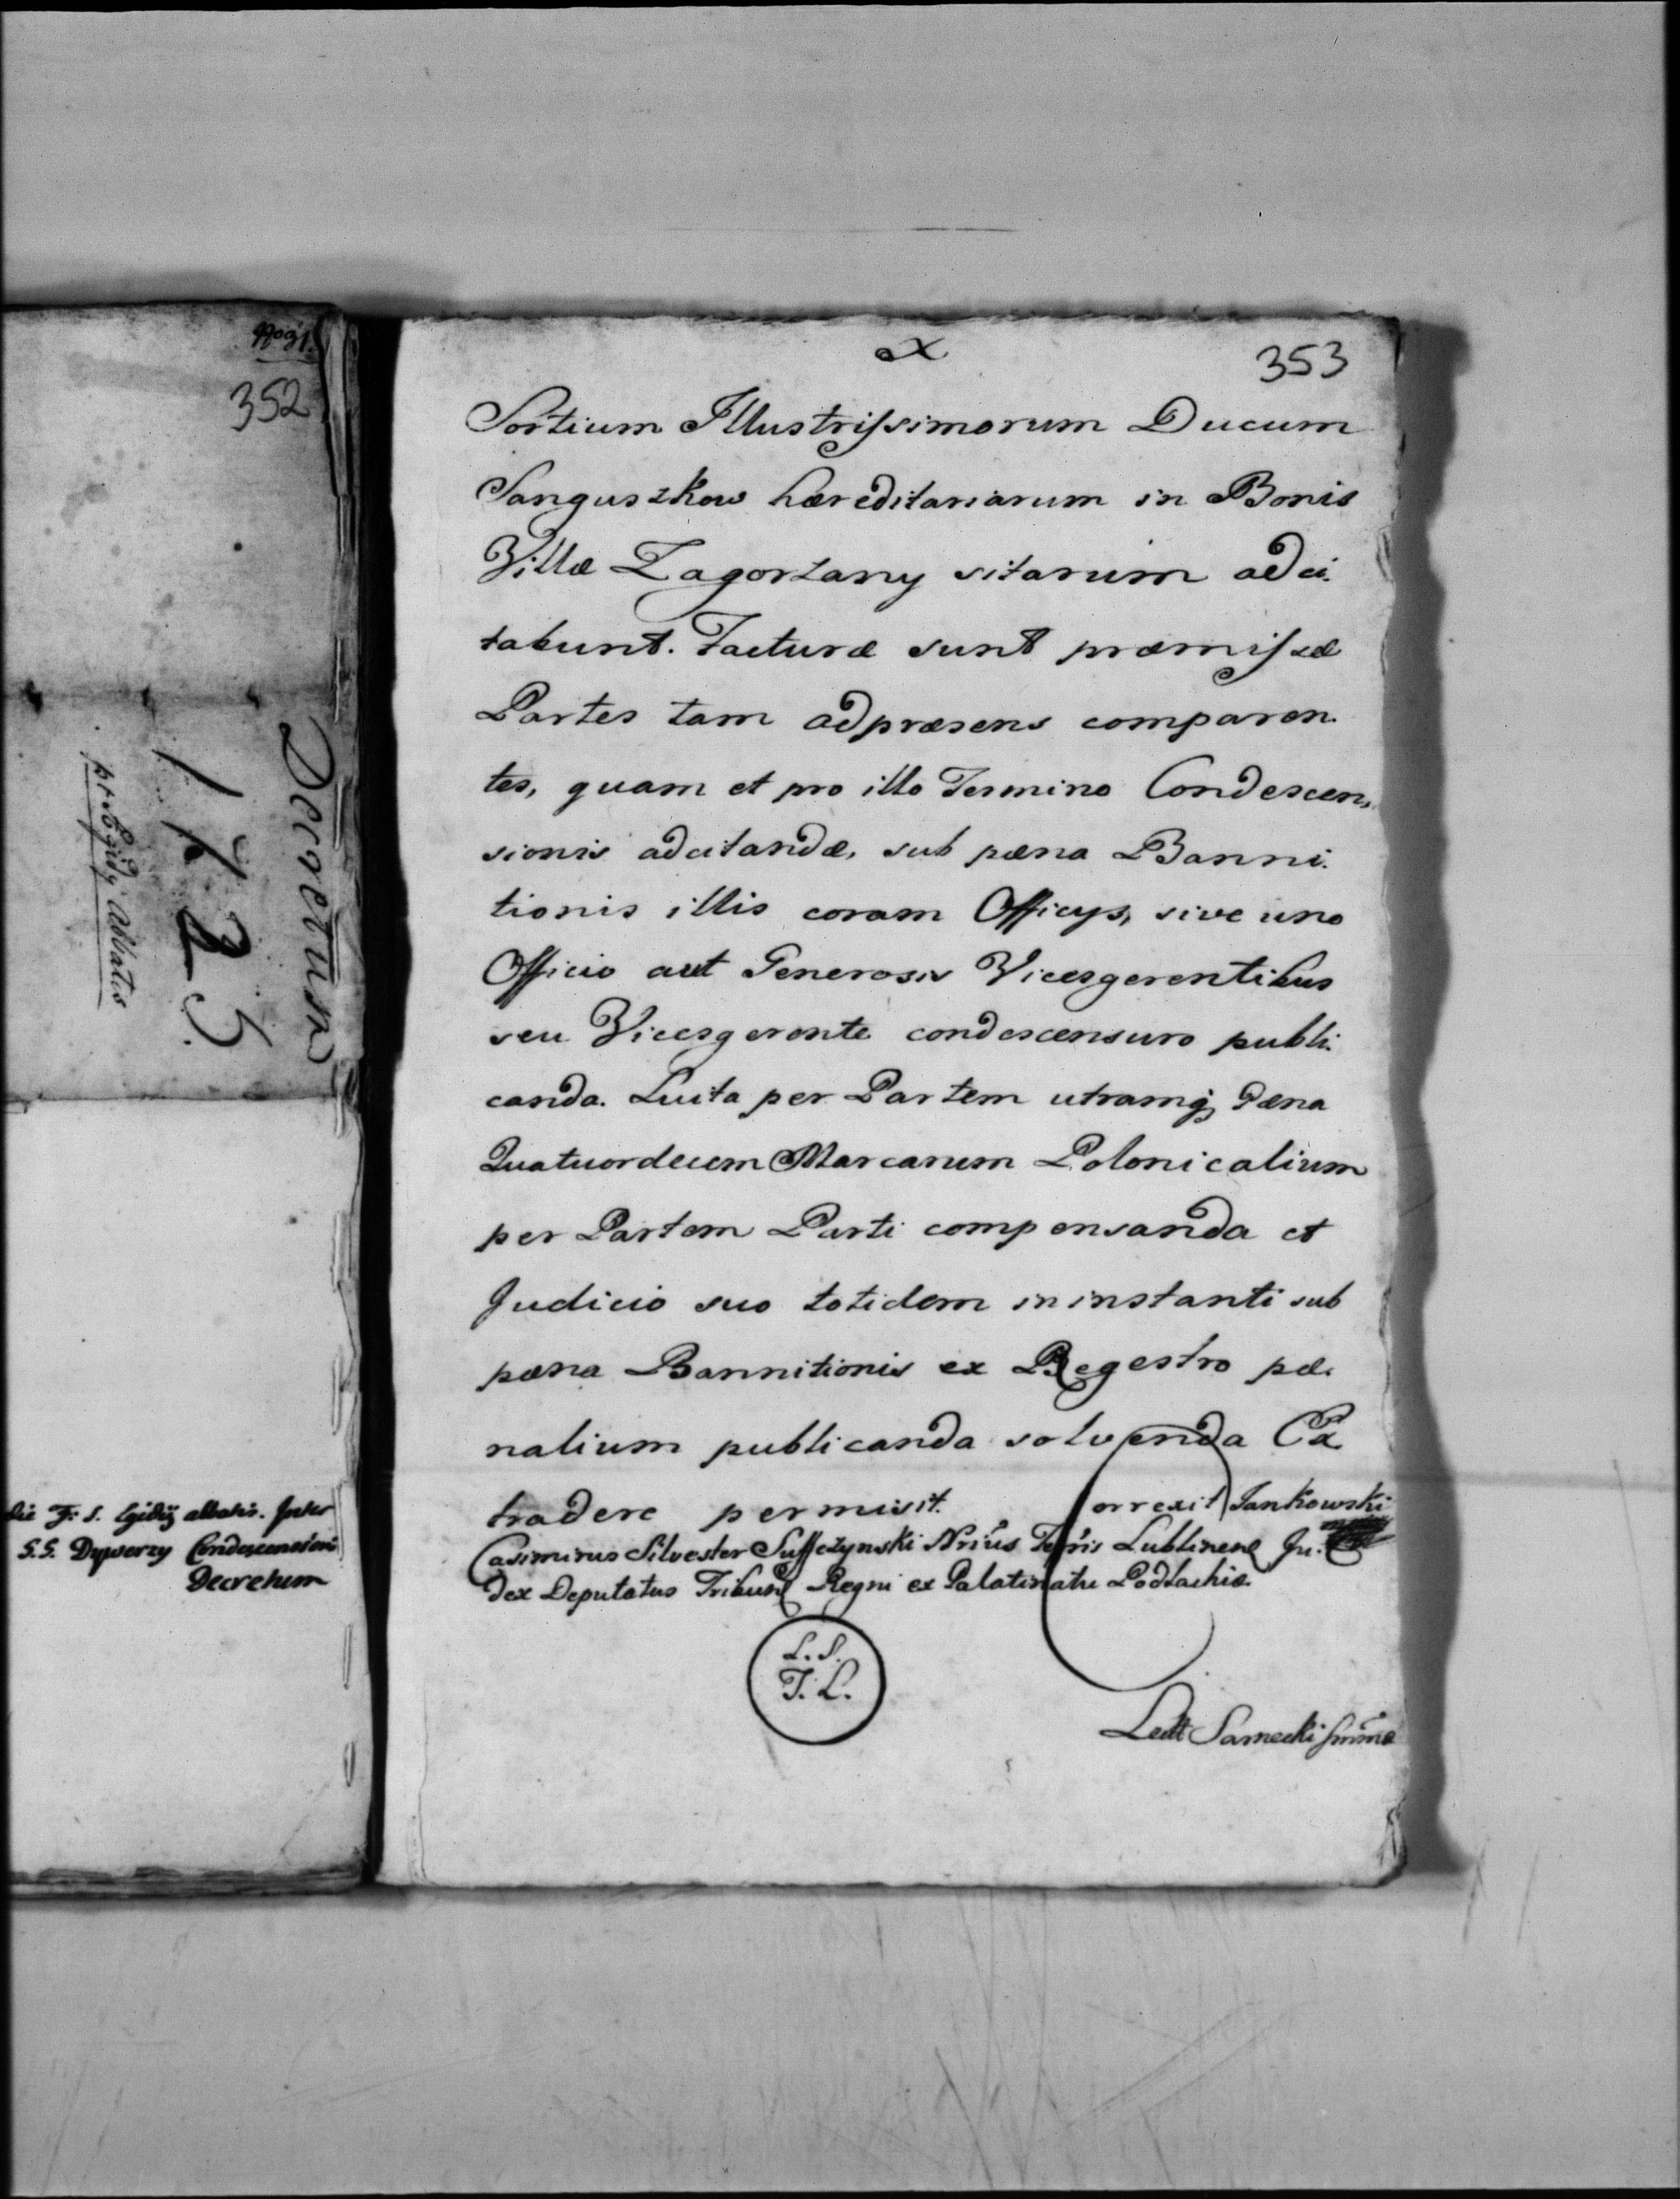 352
Decretum
1725
pt o Egidy Abbatis
die F. S. Egidij abbatis. Inter
G.G. Dywerzy Condescensionis
Decretum
353
Sortium Illustrissimorum Ducum
Sanguszkow hæreditariarum in Bonis
Villæ Zagorzany sitarum adci.
tabunt. Facturæ sunt præmissæ
Partes tam adpræsens comparen.
tes, quam et pro illo Termino Condescen,
sionis adcitandæ, sub pæna Banni.
tionis illis coram Officys, sive uno
Officio aut Generosis Vicesgerentibus
seu Vicesgerente condescensuro publi.
canda. Luita per Partem utramq; Pæna
Quatuordecem Marcarum Polonicalium
per Partem Parti compensanda et
Judicio suo totidem in instanti sub
pæna Bannitionis ex Regestro pæ.
nalium publicanda solvenda Ex
tradere permisit. Correxit Jankowski
Casimirus Silvester Suffczynski Nrius Terris Lublinens Ju.
dex Deputatus Tribunl Regni ex Palatinatu Podlachiæ.
L. S.
T. L.
Lectt Sarnecki